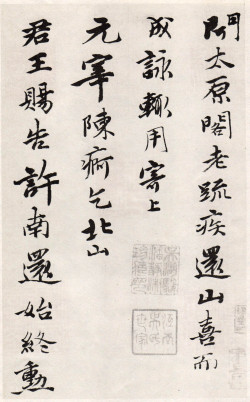 聞太原閣老疏疾還山喜而
成詠輙用寄上
元宰陳痾乞北山
君王賜告許南還始終勳